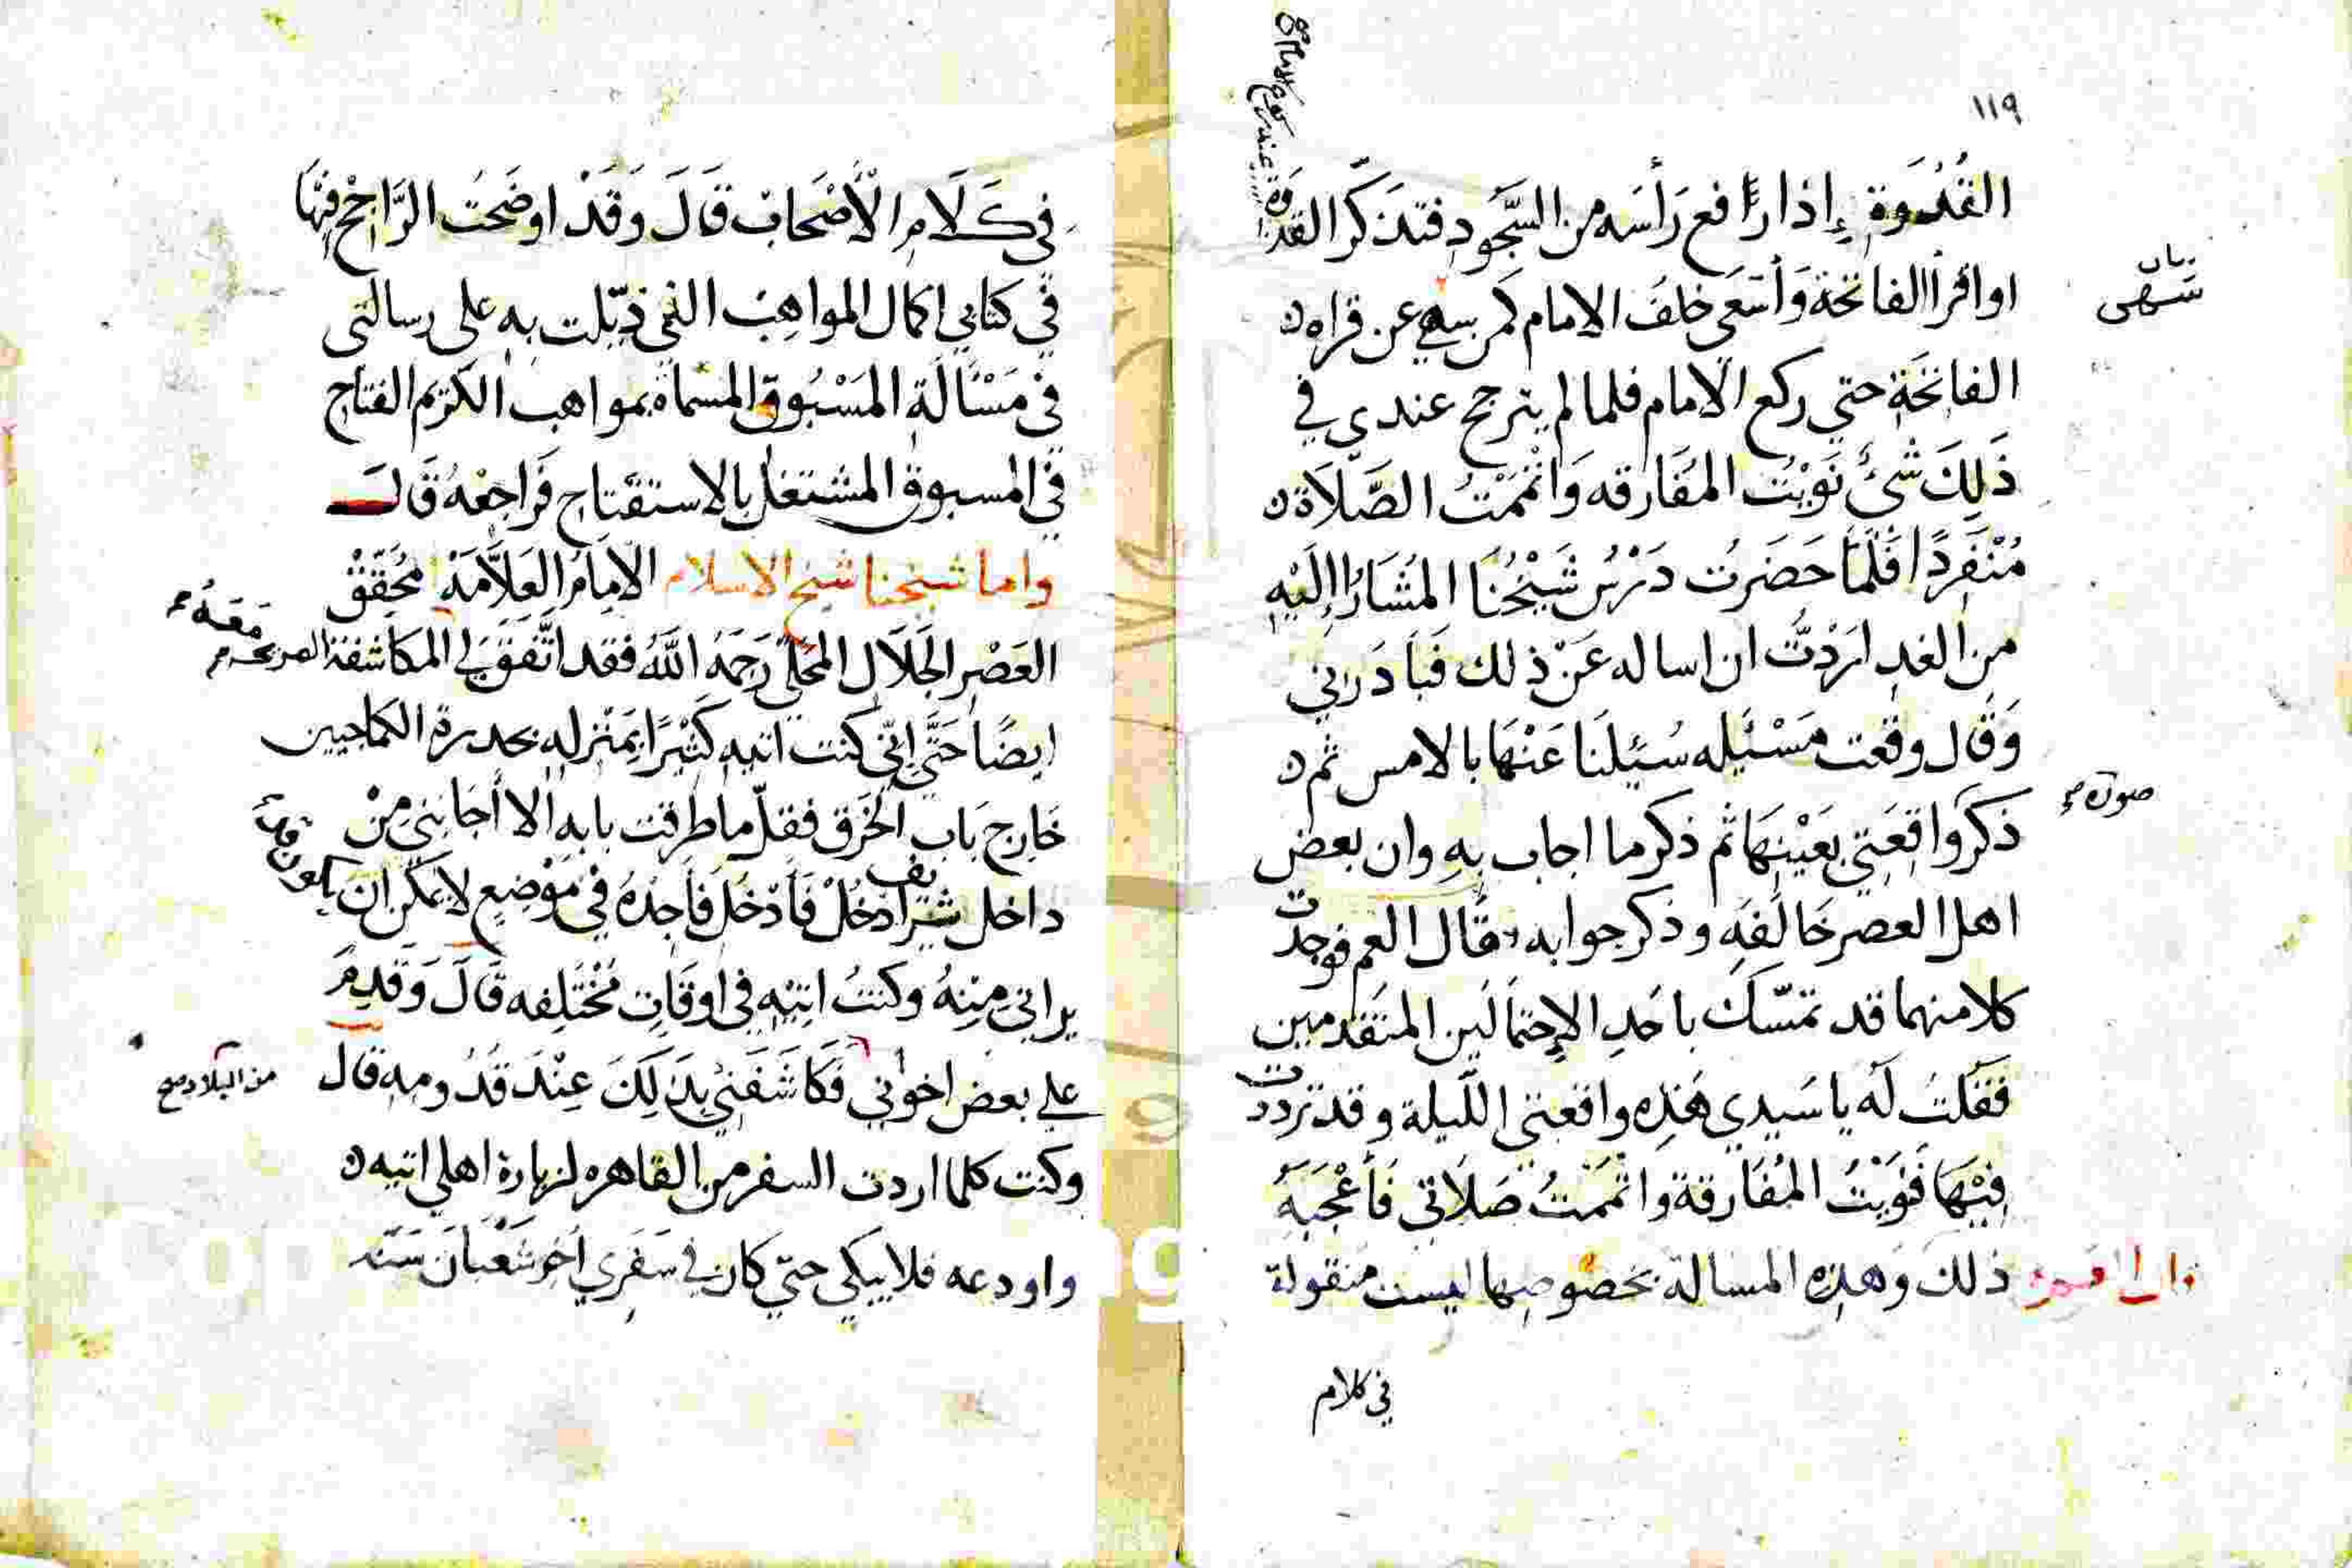 ١١٩
القُدْوَةِ إذا رافع رَأسَه من السَّجُودِ فتذكّر القدوة
عند ركوع الامام صح
اواقرأ الفاتحة وَأسَعَى خلفَ الامام كمن سهي عن قراه
بيان
سَهى
الفاتحَة حتي ركع الامام فلما لم يترجح عندي في
ذَلِكَ شئ نَوَيْتُ المفَارقه وَاتممْتُ الصَّلاَة
مُنْفَرِدًا فَلَمَّا حَضَرتُ دَرْسُ شَيْخُنَا المُشَارُ اِلَيْهِ
مِن الغدِ ارَدْتُ ان اساله عَنْ ذلك فَبَادَرَنِي
وَقَال وقعت مَسْئَيله سُئِلنَا عَنْهَا بالامس ثم
صورة
ذكرَ واقِعَتِي بعَيْنِهَا ثم ذكر ما اجاب بِهِ وان بعض
اهل العصر خَالَفَهِ وذكر جوابه قَال العم فوجدت
كلا منهما قد تمسّكَ باحَدِ الإحتمالَين المتقدمين
فَقلتُ لَه يا سَيدي هَذِه واقعتى اللَّيلة وقد ترددت
فِيْهَا فَنوَيْتُ المُفَارقة واتممَتُ صَلاَتِي فَأعْجَبَهُ
ذلكَ وَهذِه المسالة بخصُوصِها ليست منقولة
في كلام
في كَلَامِ الْأَصْحَابِ قَالَ وَقَدْ اوضَحتُ الرَّاجْح فِيْهَا
في كتابي اكمال المواهِبْ الذي ذيّلت بِهِ على رسالتى
في مَسْأَلَةِ المَسْبُوقِ المسماة بمواهب الكرَيم الفتاح
في المسبوق المشتغل بالاستفتاح فَراجعْهُ قَال
واما شيخنا شيخ الاسلام الامَامُ العَلاَّمَة مُحَقِّقْ
العَصْرِ الجَلَال المحَلي رَحمَهُ اللَّهُ فقد اتَّفقَ لِي المكَاشفة الصريحه
مَعَهُ
ايضًا حَتَّى اِنّي كنت اتيهِ كَثيْرًا بمَنْزلِهِ بحدرة الكماجيين
خَارِج بَابِ الخَرَق فقلّ ما طرقت بابهِ الا أجَابَنِي مِنْ
داخل شريف ادخُلْ فَأدْخُلَ فَأجِدُهُ في موْضِعٍ لايمكن ان يكون
يراني مِنْهُ وكنتُ اتيْهِ في اوقَاتِ مُخْتَلِفه قَالَ وَقَدِمَ
علي بعض اخوانِي فَكَاشَفَنِي بذَلِكَ عِنْدَ قُدُومِهِ قال
من البلاد صح
وكنت كلما اردت السفر من القاهره لزيارة اهلي اتيه
واودعه فلا يبكي حتي كان في سَفَرِي اخر شَعْبَانَ سَنَة